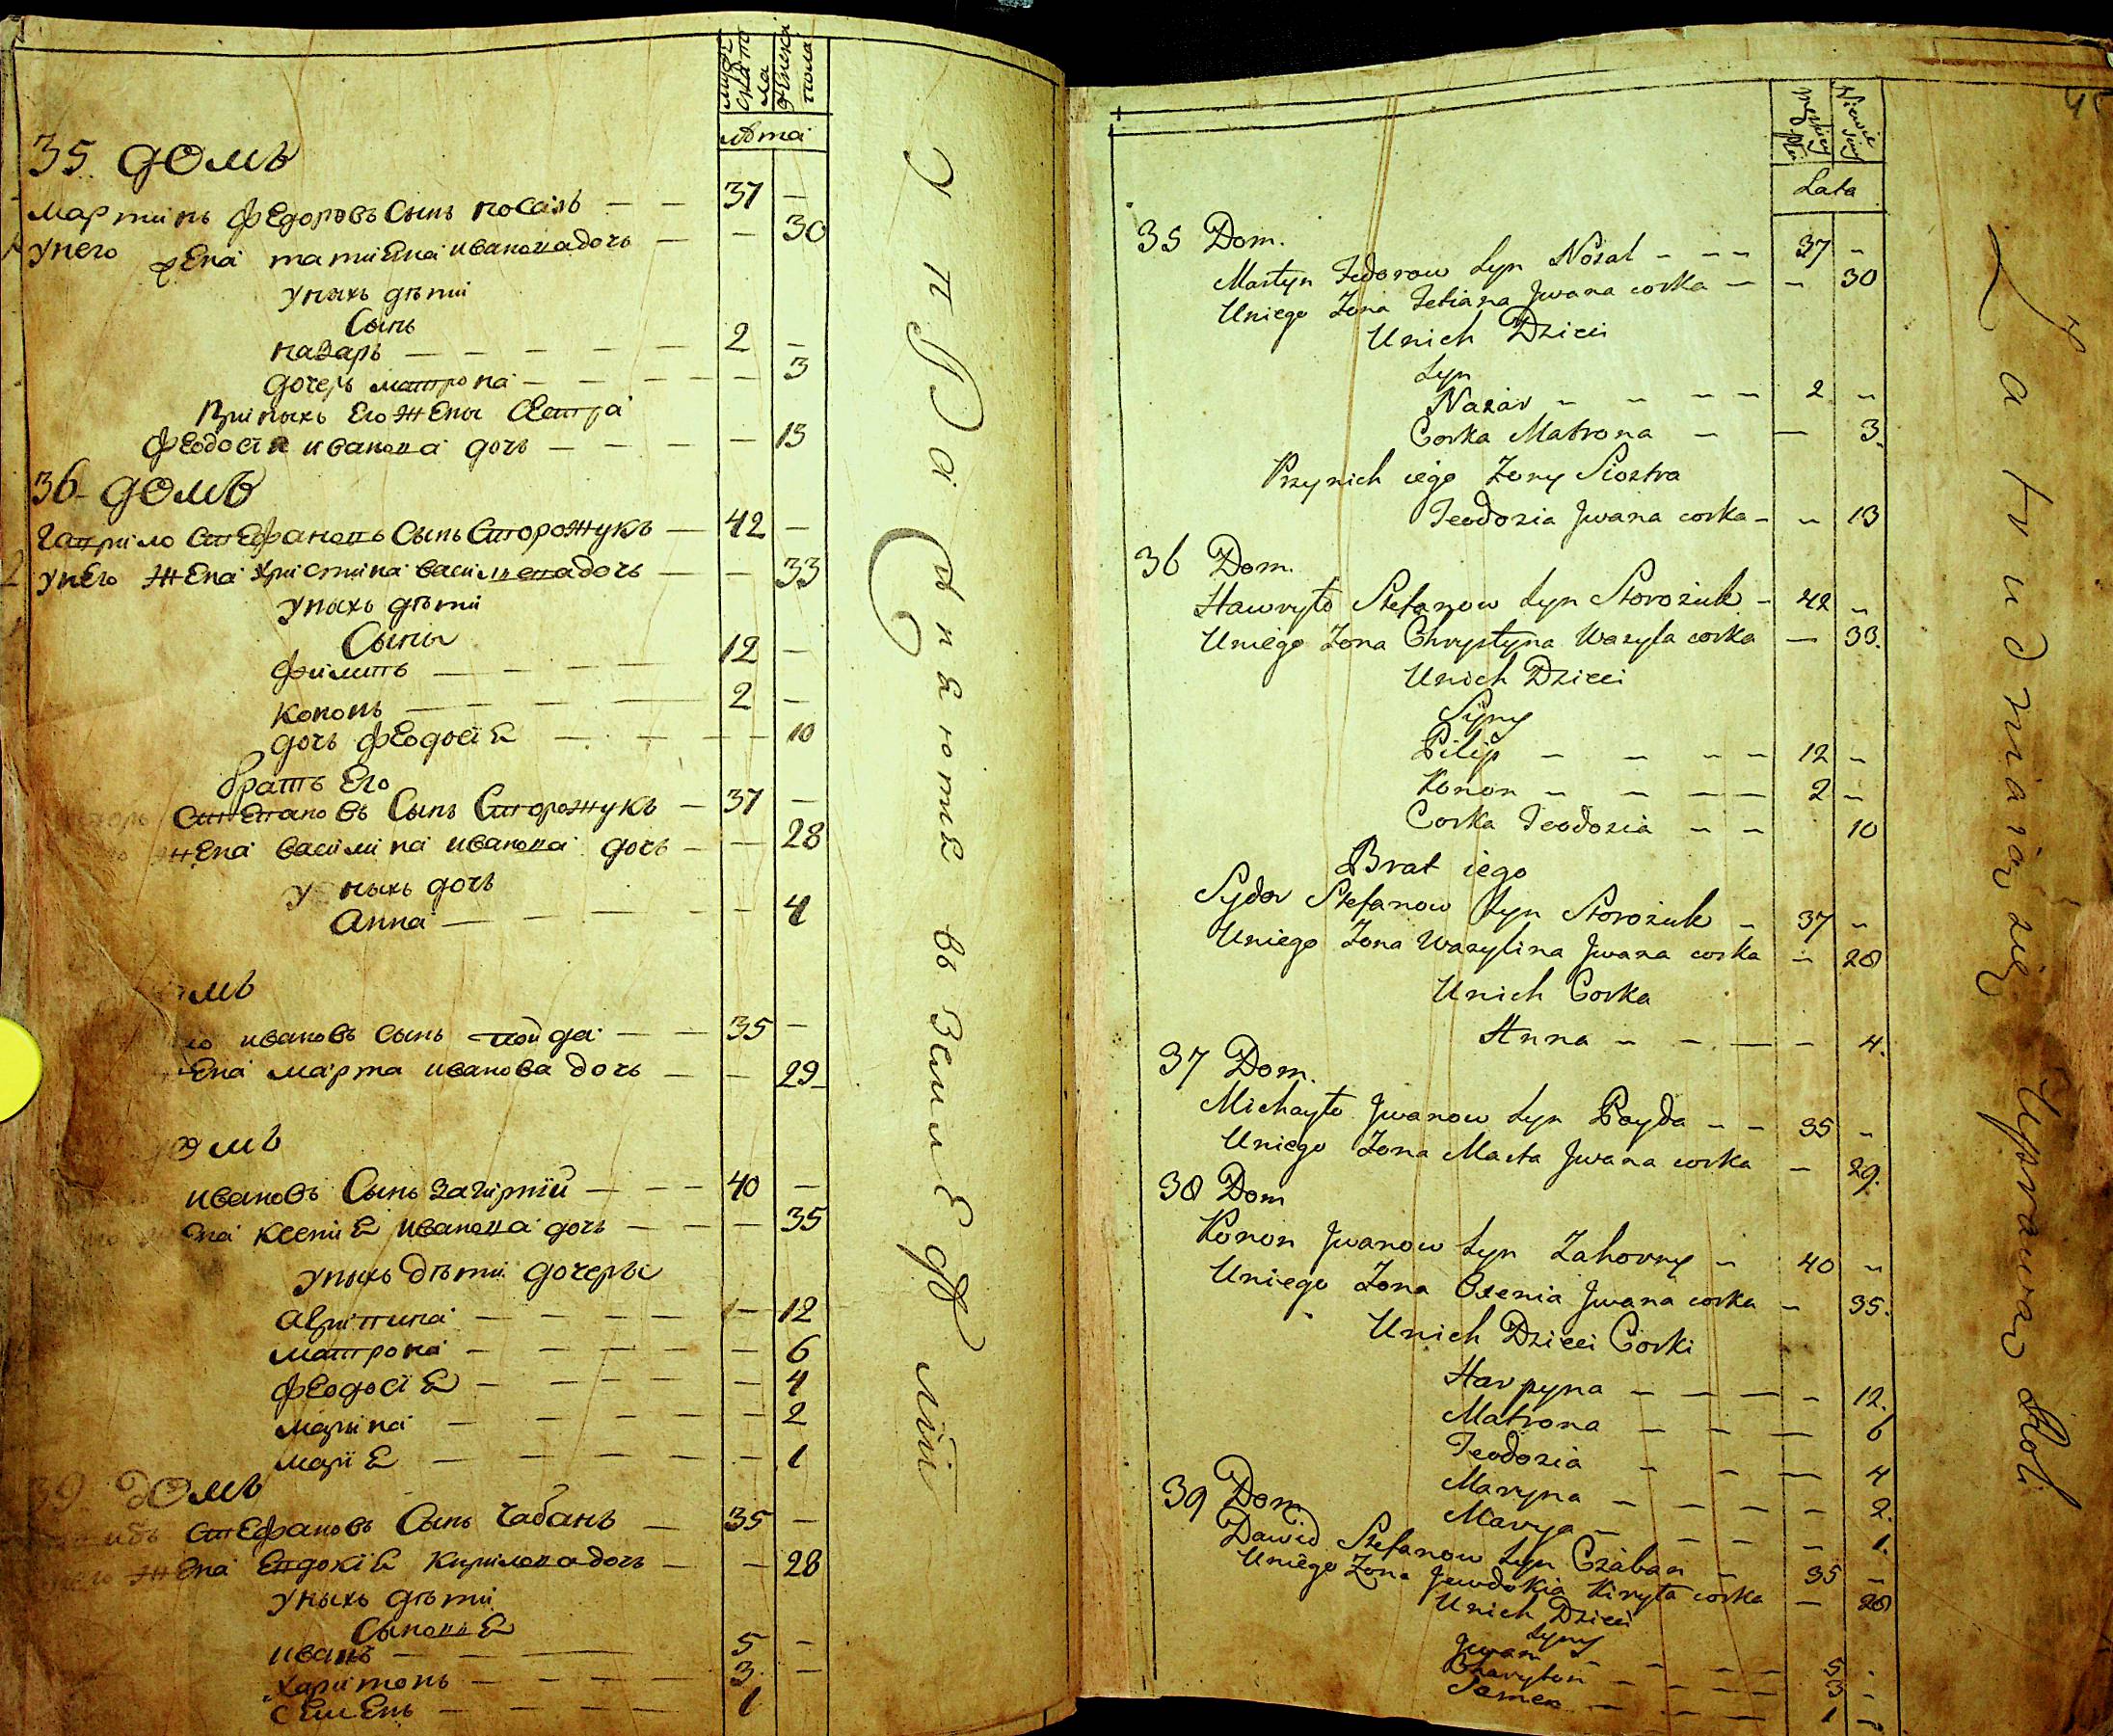 мужеска пола
женска пола
лѣта
35 домъ
мартинъ федоровъ сынъ носаль — — 37 —
унего жена татиена иванова дочь — — 30
уныхъ дѣти
сынъ
назаръ — — — — — 2 —
дочеръ матрона — — — — — 3
приныхъ его жены сестра
феодосия иванова дочь — — — — 13
36 домъ
гаврило стефановъ сынъ сторожукъ — 42 —
унего жена христина василиева дочь — — 33
уныхъ дѣти
сыны
филипъ — — — — 12 —
кононъ — — — — 2 —
дочь феодосіе — — — — — 10
братъ его
степановъ сынъ сторожукъ — 37 —
жена василина иванова дочь — — 28
у ныхъ дочь
анна — — — — — 4
омъ
ивановъ сынъ пойда — — 35 —
ена марта иванова дочь — — 29
омъ
ивановъ сынъ загирній — — — 40 —
ена ксение иванова дочь — — — 35
уныхъ дѣти дочеры
агрипина — — — — — 12
матрона — — — — — 6
феодосіе — — — — — 4
марина — — — — — 2
марие — — — — — 1
39 домъ
стефановъ сынъ чабанъ — 35 —
унего жена евдокие кирилова дочь — — 28
уныхъ дѣти
сынове
иванъ — — — 5 —
харитонъ — — — — 3 —
семенъ — — — — 1
упражняюте въ земледѣлии
45
Męskiey płci
Niewieściey
Lata
35 Dom.
Martyn Fedorow syn Nosal — — — 37 —
Uniego Żona Tetiana Jwana corka — — 30
Unich Dzieci
Syn
Nazar — — — — 2 —
Corka Matrona — — 3.
Przynich iego Żony Siostra
Teodozia Jwana corka — — 13
36 Dom.
Hawryło Stefanow syn Storożuk — 42 —
Uniego Żona Chrystyna Wasyla corka — 33.
Unich Dzieci
Syny
Pilip — — — — 12 —
Konon — — — — 2 —
Corka Teodozia — — 10
Brat iego
Sydor Stefanow syn Storożuk — 37 —
Uniego Żona Wasylina Jwana corka — 28
Unich Corka
Anna — — — — 4.
37 Dom.
Michayło Jwanow syn Poyda — — 35 —
Uniego Żona Marta Jwana corka — 29.
38 Dom
Konon Jwanow syn Zahorny — 40 —
Uniego Żona Oxenia Jwana corka — 35.
Unich Dzieci Corki
Harpyna — — — — 12.
Matrona — — — 6
Teodozia — — — 4
Maryna — — — — — 2.
Marya — — — — 1.
39 Dom.
Dawid Stefanow syn Czaban — 35 —
Uniego Żona Jewdokia Kiryła corka — 28
Unich Dzieci
Syny
Jwan — — — — 5 -
Charyton — — — — 3 —
Semen — — — — 1 —
Zatrudniaią się Uprawą Roli